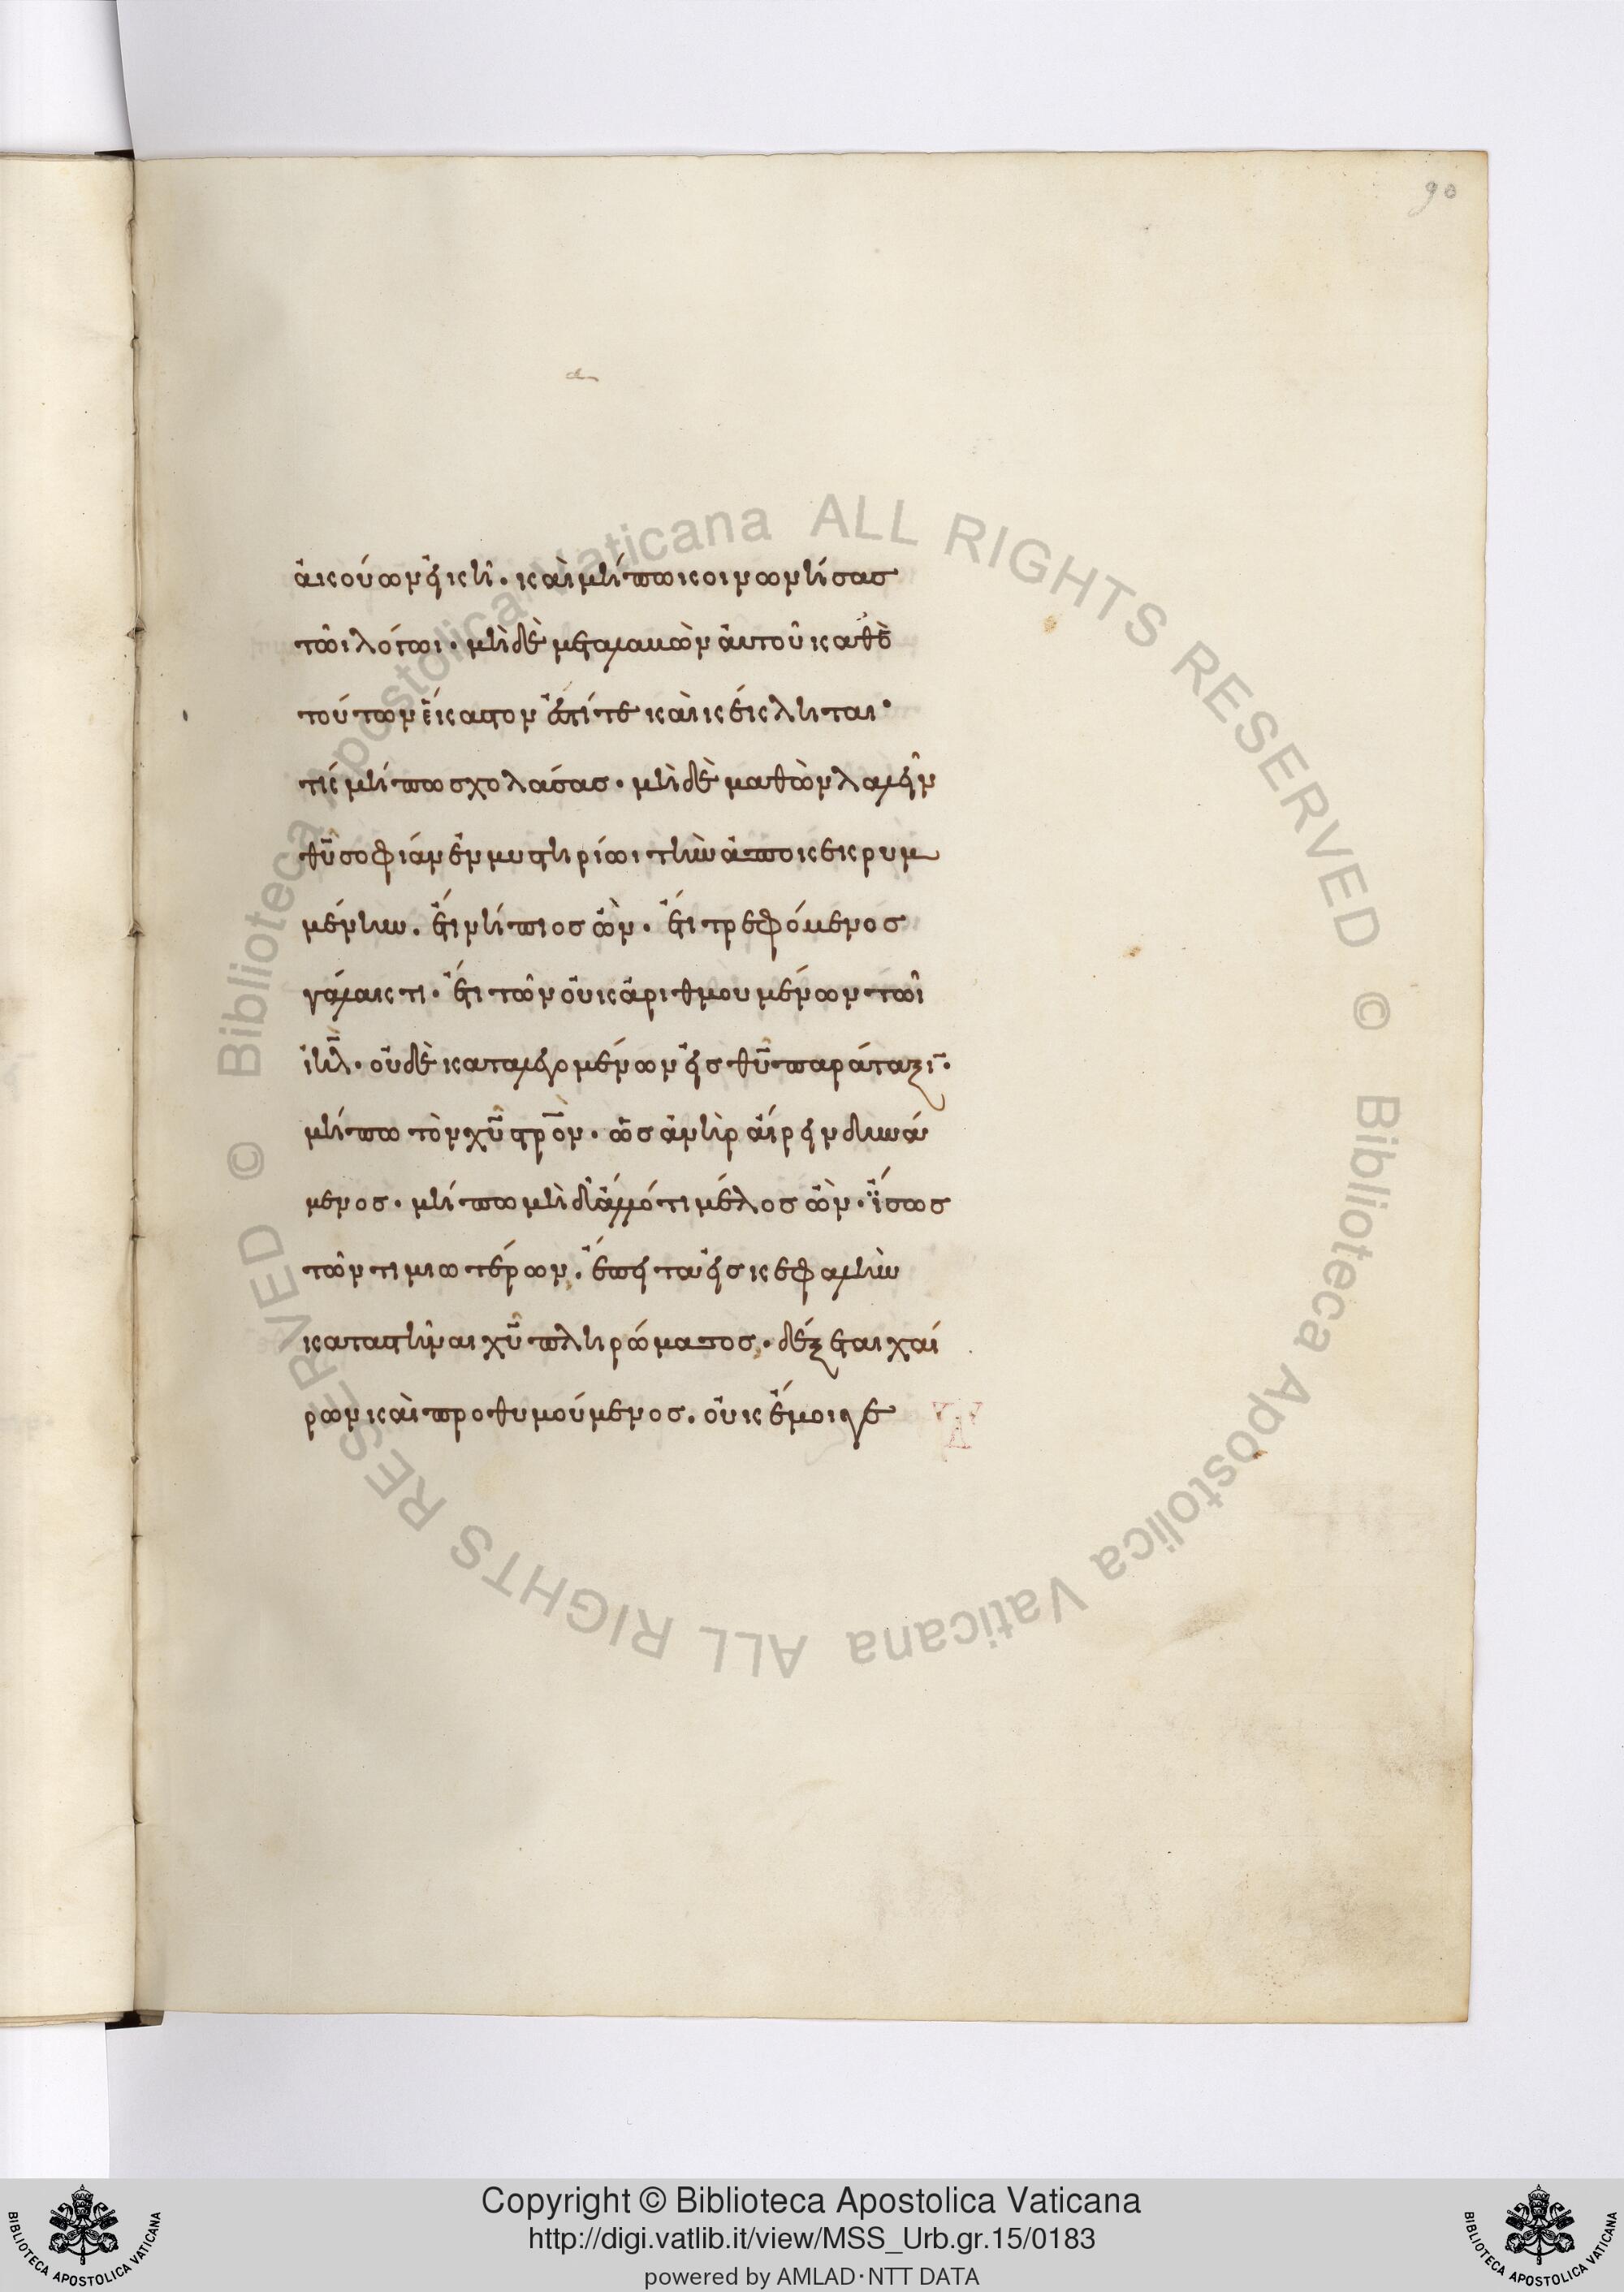 90
ἀκούων εἰκῆ· καὶ μήπω κοινωνήσας
τῶι λόγωι· μὴδὲ μεταλαβὼν αὐτοῦ καθὸ
τούτων ἕκαστον ἐστί τε καὶ κέκληται·
τίς μήπω σχολάσας· μὴδὲ μαθὼν λαλεῖν
θῦ σοφίαν ἐν μυστηρίωι τὴν ἀποκεκρυμ
μένην· ἔτι νήπιος ὢν· ἔτι τρεφόμενος
γάλακτι· ἔτι τῶν οὐκ ἀριθμουμένων τῶι
ἰῆλ· οὐδὲ καταλεγομένων εἰς θῦ παράταξιν·
μήπω τὸν χῦ στρὸν· ὡς ἀνὴρ αἴρειν δυνά
μενος· μήπω μὴδἄλλό τι μέλος ὢν· ἴσως
τῶν τιμιωτέρων· ἔπειτα εἰς κεφαλὴν
καταστῆναι χῦ πληρώματος· δέξεται χαί
ρων καὶ προθυμούμενος· οὐκ ἔμοιγε
Copyright © Biblioteca Apostolica Vaticana
http://digi.vatlib.it/view/MSS_Urb.gr.15/0183
powered by AMLAD·NTT DATA
BIBLIOTECA APOSTOLICA VATICANA
BIBLIOTECA APOSTOLICA VATICANA
© Biblioteca Apostolica Vaticana ALL RIGHTS RESERVED
© Biblioteca Apostolica Vaticana ALL RIGHTS RESERVED